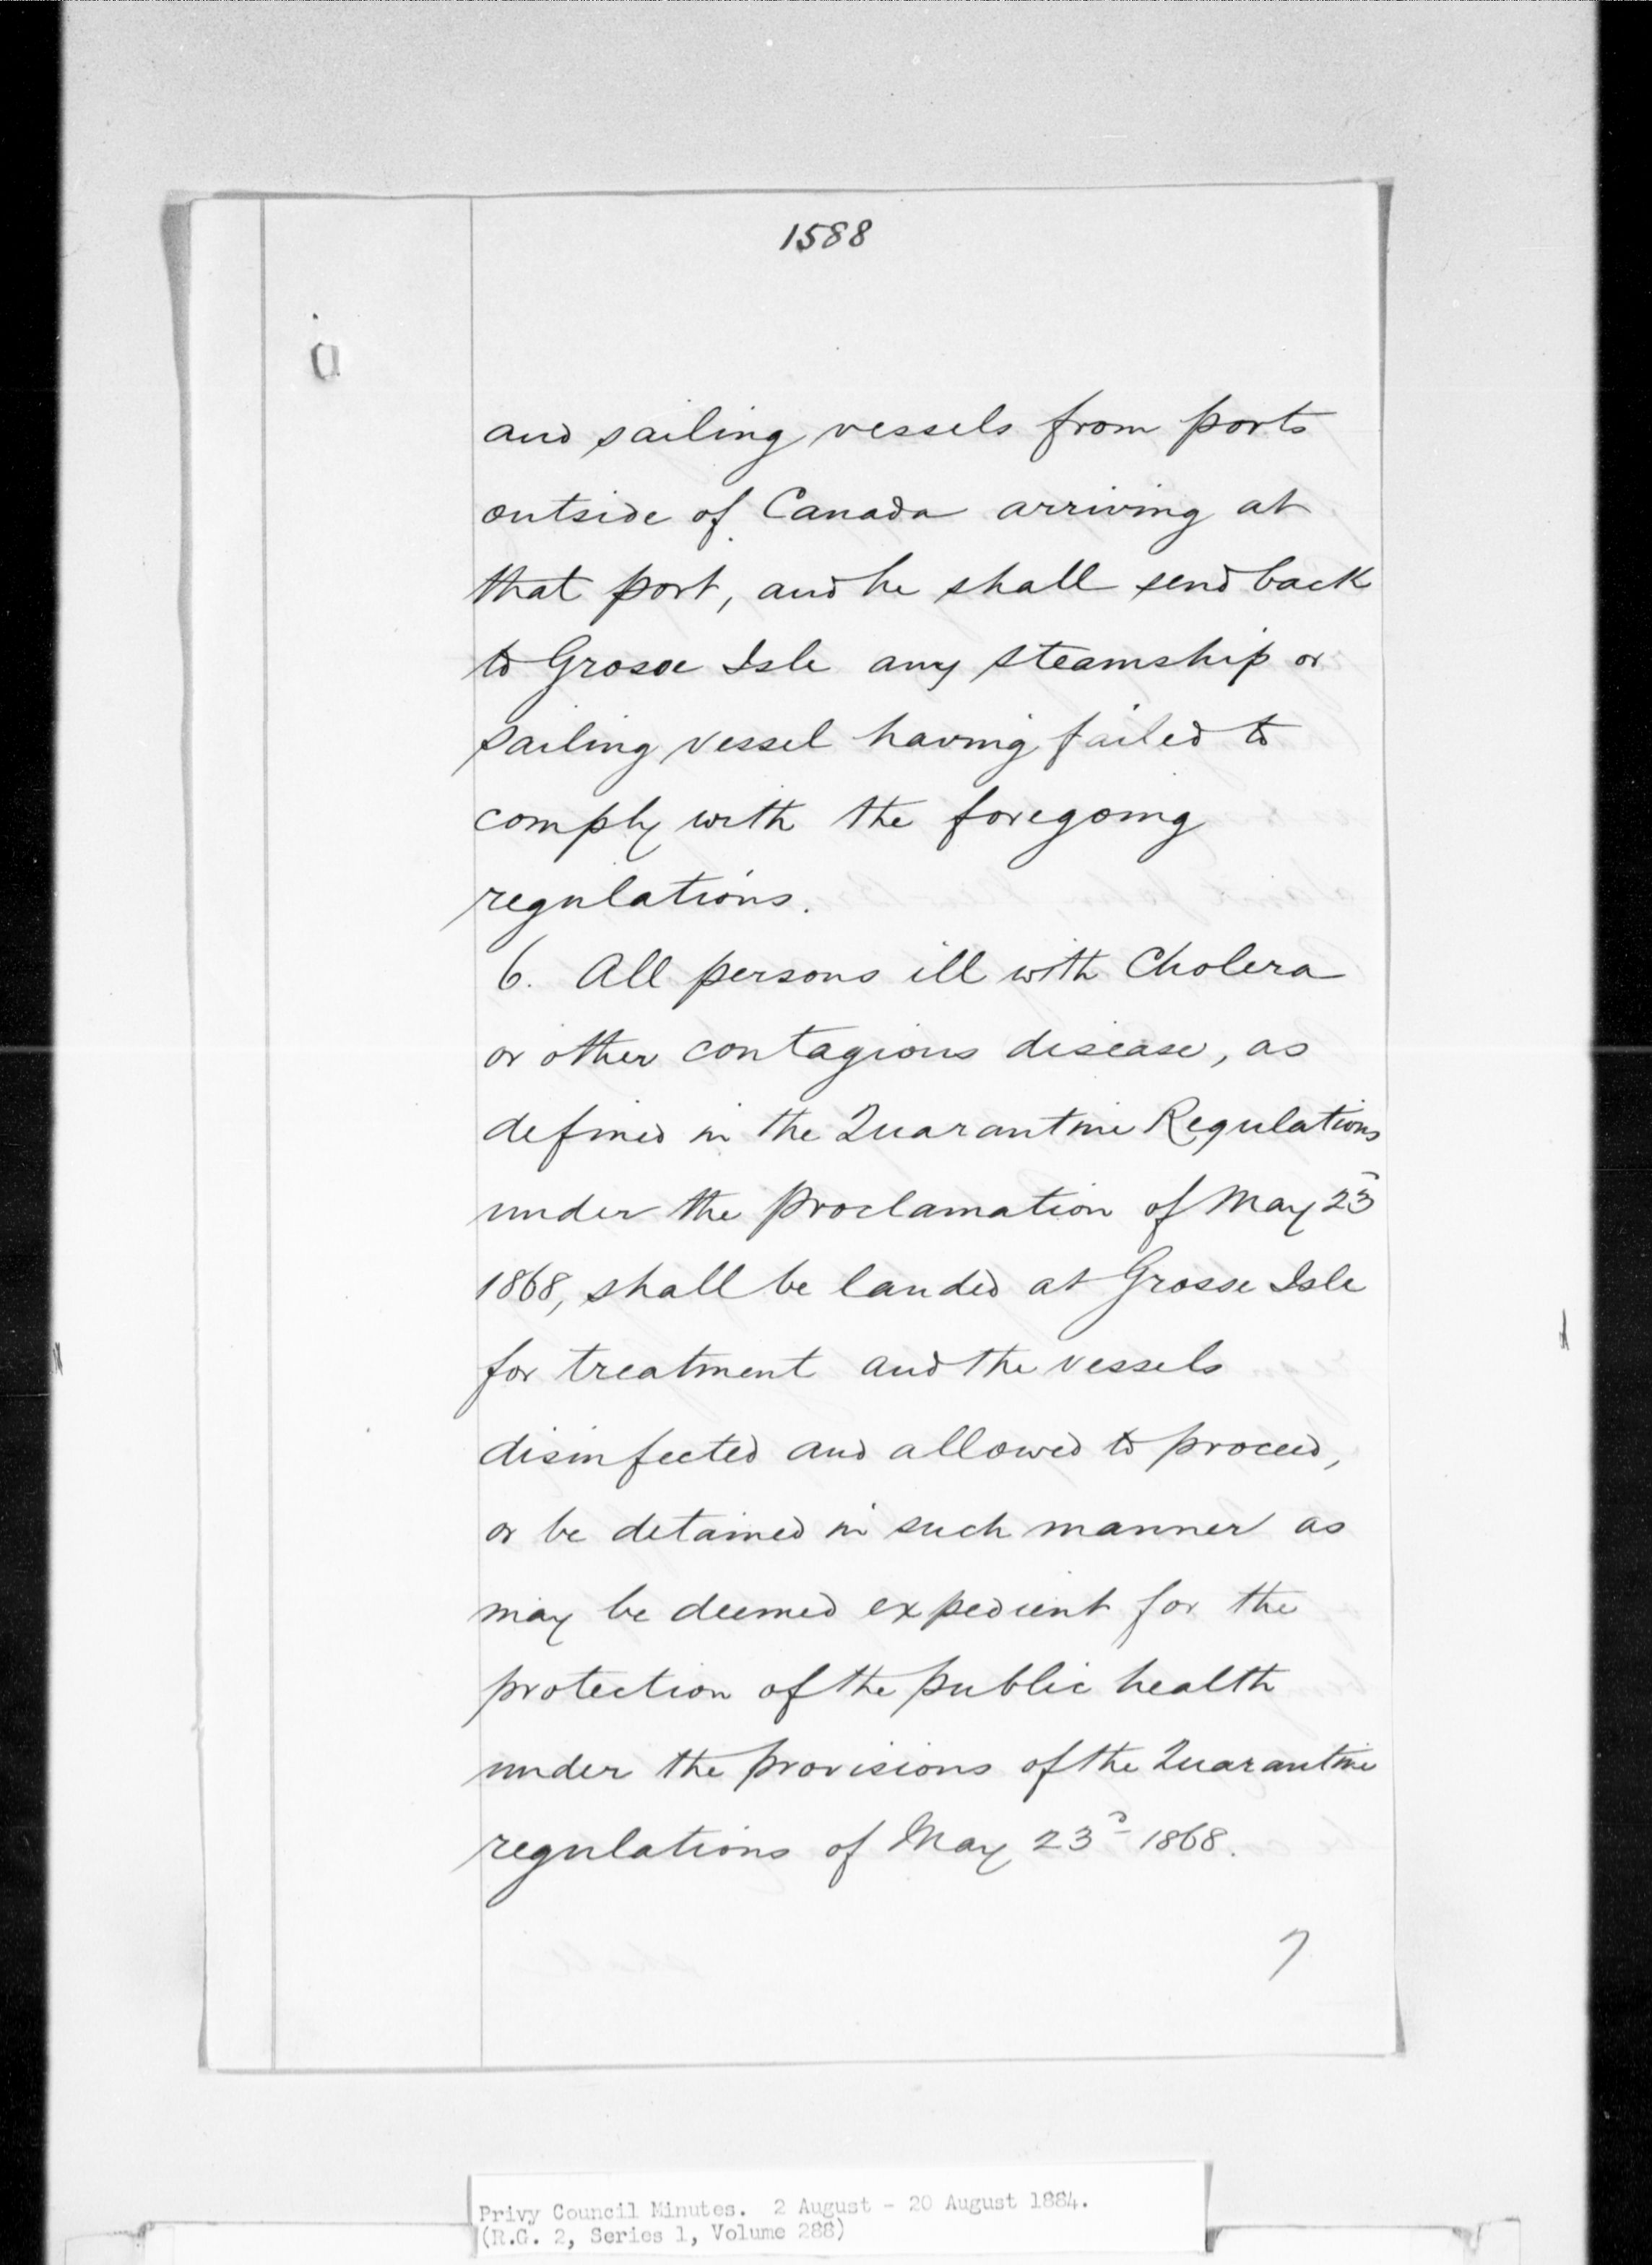 1588
and sailing vessels from ports
outside of Canada arriving at
that port, and he shall send back
to Grosse Isle any steamship or
sailing vessel having failed to
comply with the foregoing
regulations.
6. All persons ill with Cholera
or other contagious disease, as
defined in the Quarantine Regulations
under the proclamation of May 23
1868, shall be landed at Grosse Isle
for treatment and the vessels
disinfected and allowed to proceed,
or be detained in such manner as
may be deemed expedient for the
protection of the public health
under the provisions of the Quarantine
regulations of May 23d 1868.
7
Privy Council Minutes. 2 August - 20 August 1884.
(R.G. 2, Series 1, Volume 288)